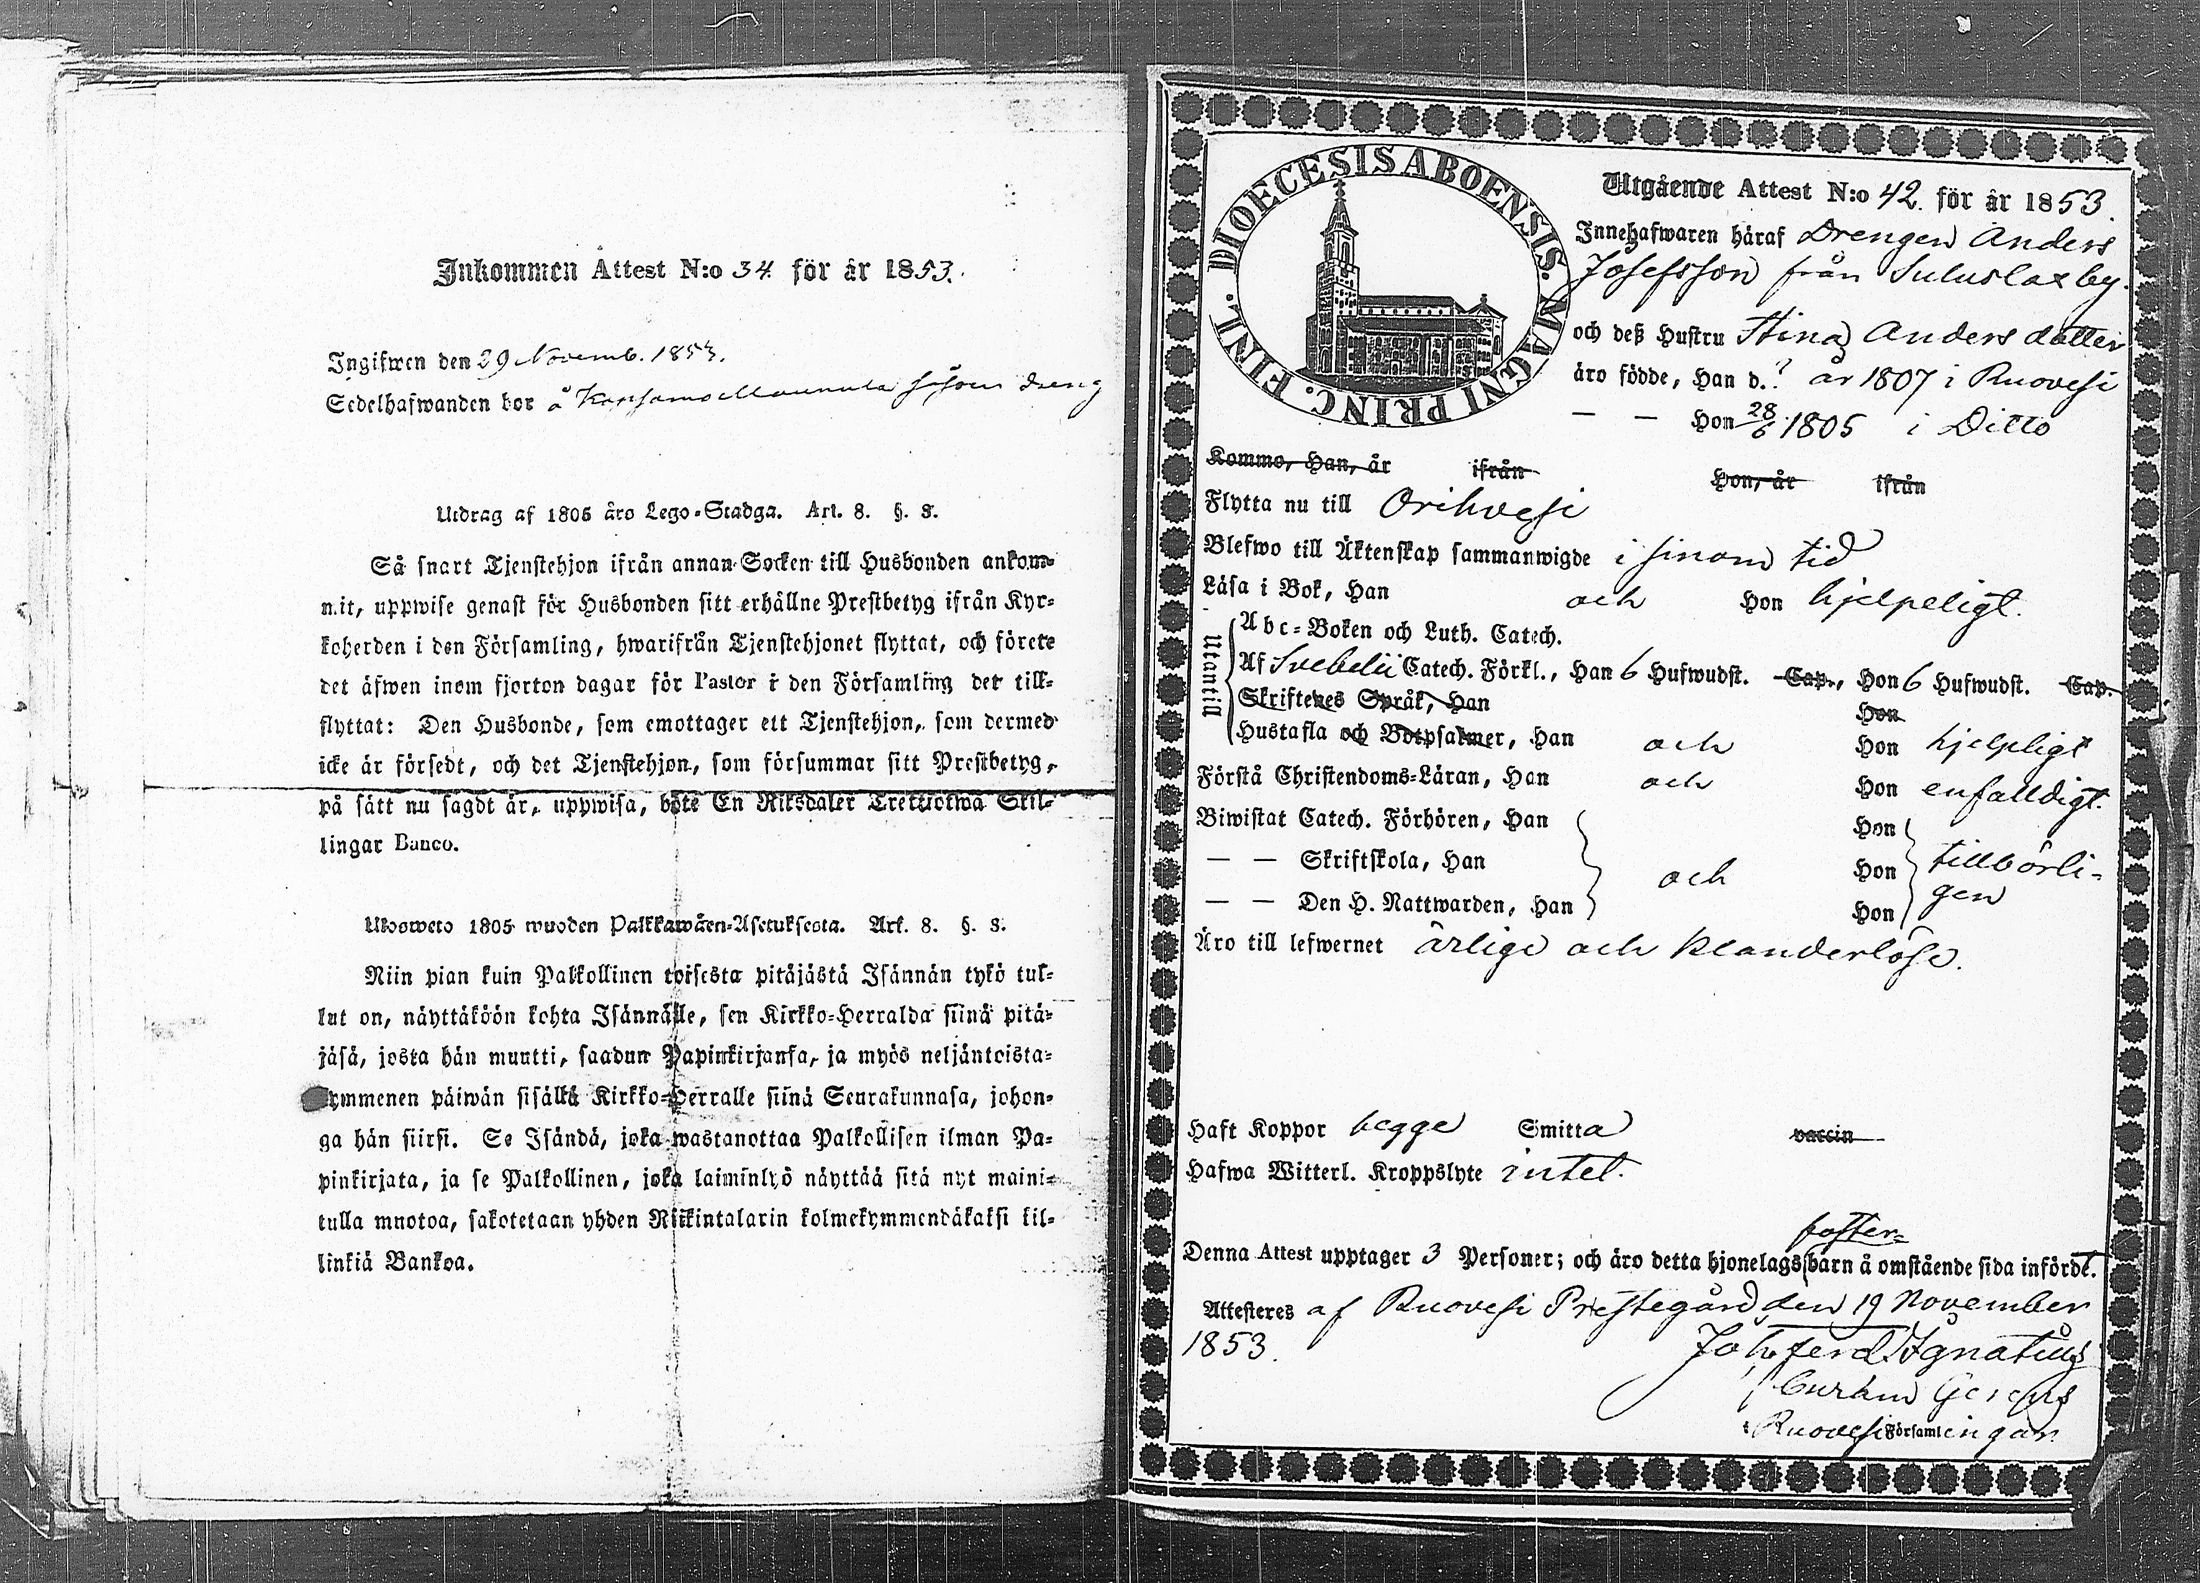 Inkommen Attest N:o 34 för år 1853.
Ingifwen den 29 Novemb. 1853.
Sedelhafwanden bor å såsom dreng
Utdrag af 1805 års Lego-Stadga. Art. 8. §. 8.
Så snart Tjenstehjon ifrån annan Socken till Husbonden ankom-
mit, uppwise genast för Husbonden sitt erhållne Prestbetyg ifrån Kyr-
koherden i den Församling, hwarifrån Tjenstehjonet flyttat, och förete
det äfwen inom fjorton dagar för Pastor i den Församling det till-
flyttat: Den Husbonde, som emottager ett Tjenstehjon, som dermed
icke är försedt, och det Tjenstehjon, som försummar sitt Prestbetyg,
på sätt nu sagdt är, uppwisa, böte En Riksdaler Trettiotwå Skil-
lingar Banco.
Ulosweto 1805 wuoden Palkkawäen-Asetuksesta. Art. 8. §. 8.
Niin pian kuin Palkollinen toisesta pitäjästä Isännän tykö tul-
lut on, näyttäköön kohta Isännälle, sen Kirkko-Herralda siinä pitä-
jäsä, josta hän muutti, saadun Papinkirjansa, ja myös neljäntoista-
kymmenen päiwän sisällä Kirkko-Herralle siinä Seurakunnasa, johon-
ga hän siirsi. Se Isändä, joka wastanottaa Palkollisen ilman Pa-
pinkirjata, ja se Palkollinen, joka laiminlyö näyttää sitä nyt maini-
tulla muotoa, sakotetaan yhden Riikintalarin kolmekymmendäkaksi kil-
linkiä Bankoa.
DIOECESIS ABOENSIS. MAGNI PRINC. FINL.
Utgående Attest N:o 42. för år 1853.
Innehafwaren häraf Drengen Anders
Josefsson från Suluslax by.
och deß Hustru Stina Anders dotter
äro födde, Han d. ? år 1807 i Ruovesi
— — Hon 28/6 1805 i Ditto
Kommo, Han, år ifrån Hon, år ifrån
Flytta nu till Orihvesi
Blefwo till Äktenskap sammanwigde i sinom tid
Läsa i Bok, Han och Hon hjelpeligt.
Utantill
Abc-Boken och Luth. Catech.
Af Svebelii Catech. Förkl., Han 6 Hufwudst. Cap., Hon 6 Hufwudst. Cap.
Skriftenes Språk, Han Hon
Hustafla och Botpsalmer, Han och Hon hjelpligt
Förstå Christendoms-Läran, Han och Hon enfalldigt.
Biwistat Catech. Förhören, Han Hon
— — Skriftskola, Han och Hon tillbörli-
— — Den H. Nattwarden, Han Hon gen
Äro till lefwernet ärliga och klanderlösa.
Haft Koppor begge Smitta vaccin
Hafwa Witterl. Kroppslyte intet.
foster-
Denna Attest upptager 3 Personer; och äro detta hjonelags barn å omstående sida införde.
Attesteres af Ruovesi Prestegård den 19 November
1853. Joh. Ferd. Ignatius
Ruovesi Församlingar